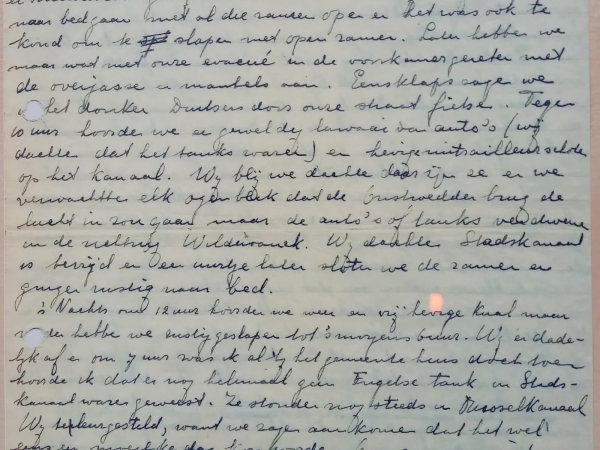 naar bed gaan met al die ramen open en het was ook te
koud om te slapen met open ramen. Later hebben we
maar wat met onze evacué in de voorkamer gezeten met
de overjassen en mantels aan. Eensklaps zagen we
in het donker Duitsers door onze straat fietsen. Tegen
10 uur hoorden we een geweldig lawaai van auto's (wij
dachten dat het tanks waren) en hevige mitrailleurschoten
op het kanaal. Wij blij we dachten daar zijn ze en we
verwachtten elk ogenblik dat de Onstwedder brug de
lucht in zou gaan maar de auto's of tanks verdwenen
in de richting Wildervank. Wij dachten Stadskanaal
is bevrijd en een uurtje later sloten we de ramen en
gingen rustig naar bed.
's Nachts om 12 uur hoorden we weer een vrij hevige knal maar
verder hebben we rustig geslapen tot 's morgens 6 uur. Wij er dade-
lijk af en om 7 uur was ik al bij het gemeentehuis doch toen
hoorde ik dat er nog helemaal geen Engelse tank in Stads-
kanaal waren geweest. Ze stonden nog steeds in Musselkanaal
Wij teleurgesteld, want we zagen aankomen dat het wel
eens een moeilijke dag kon worden